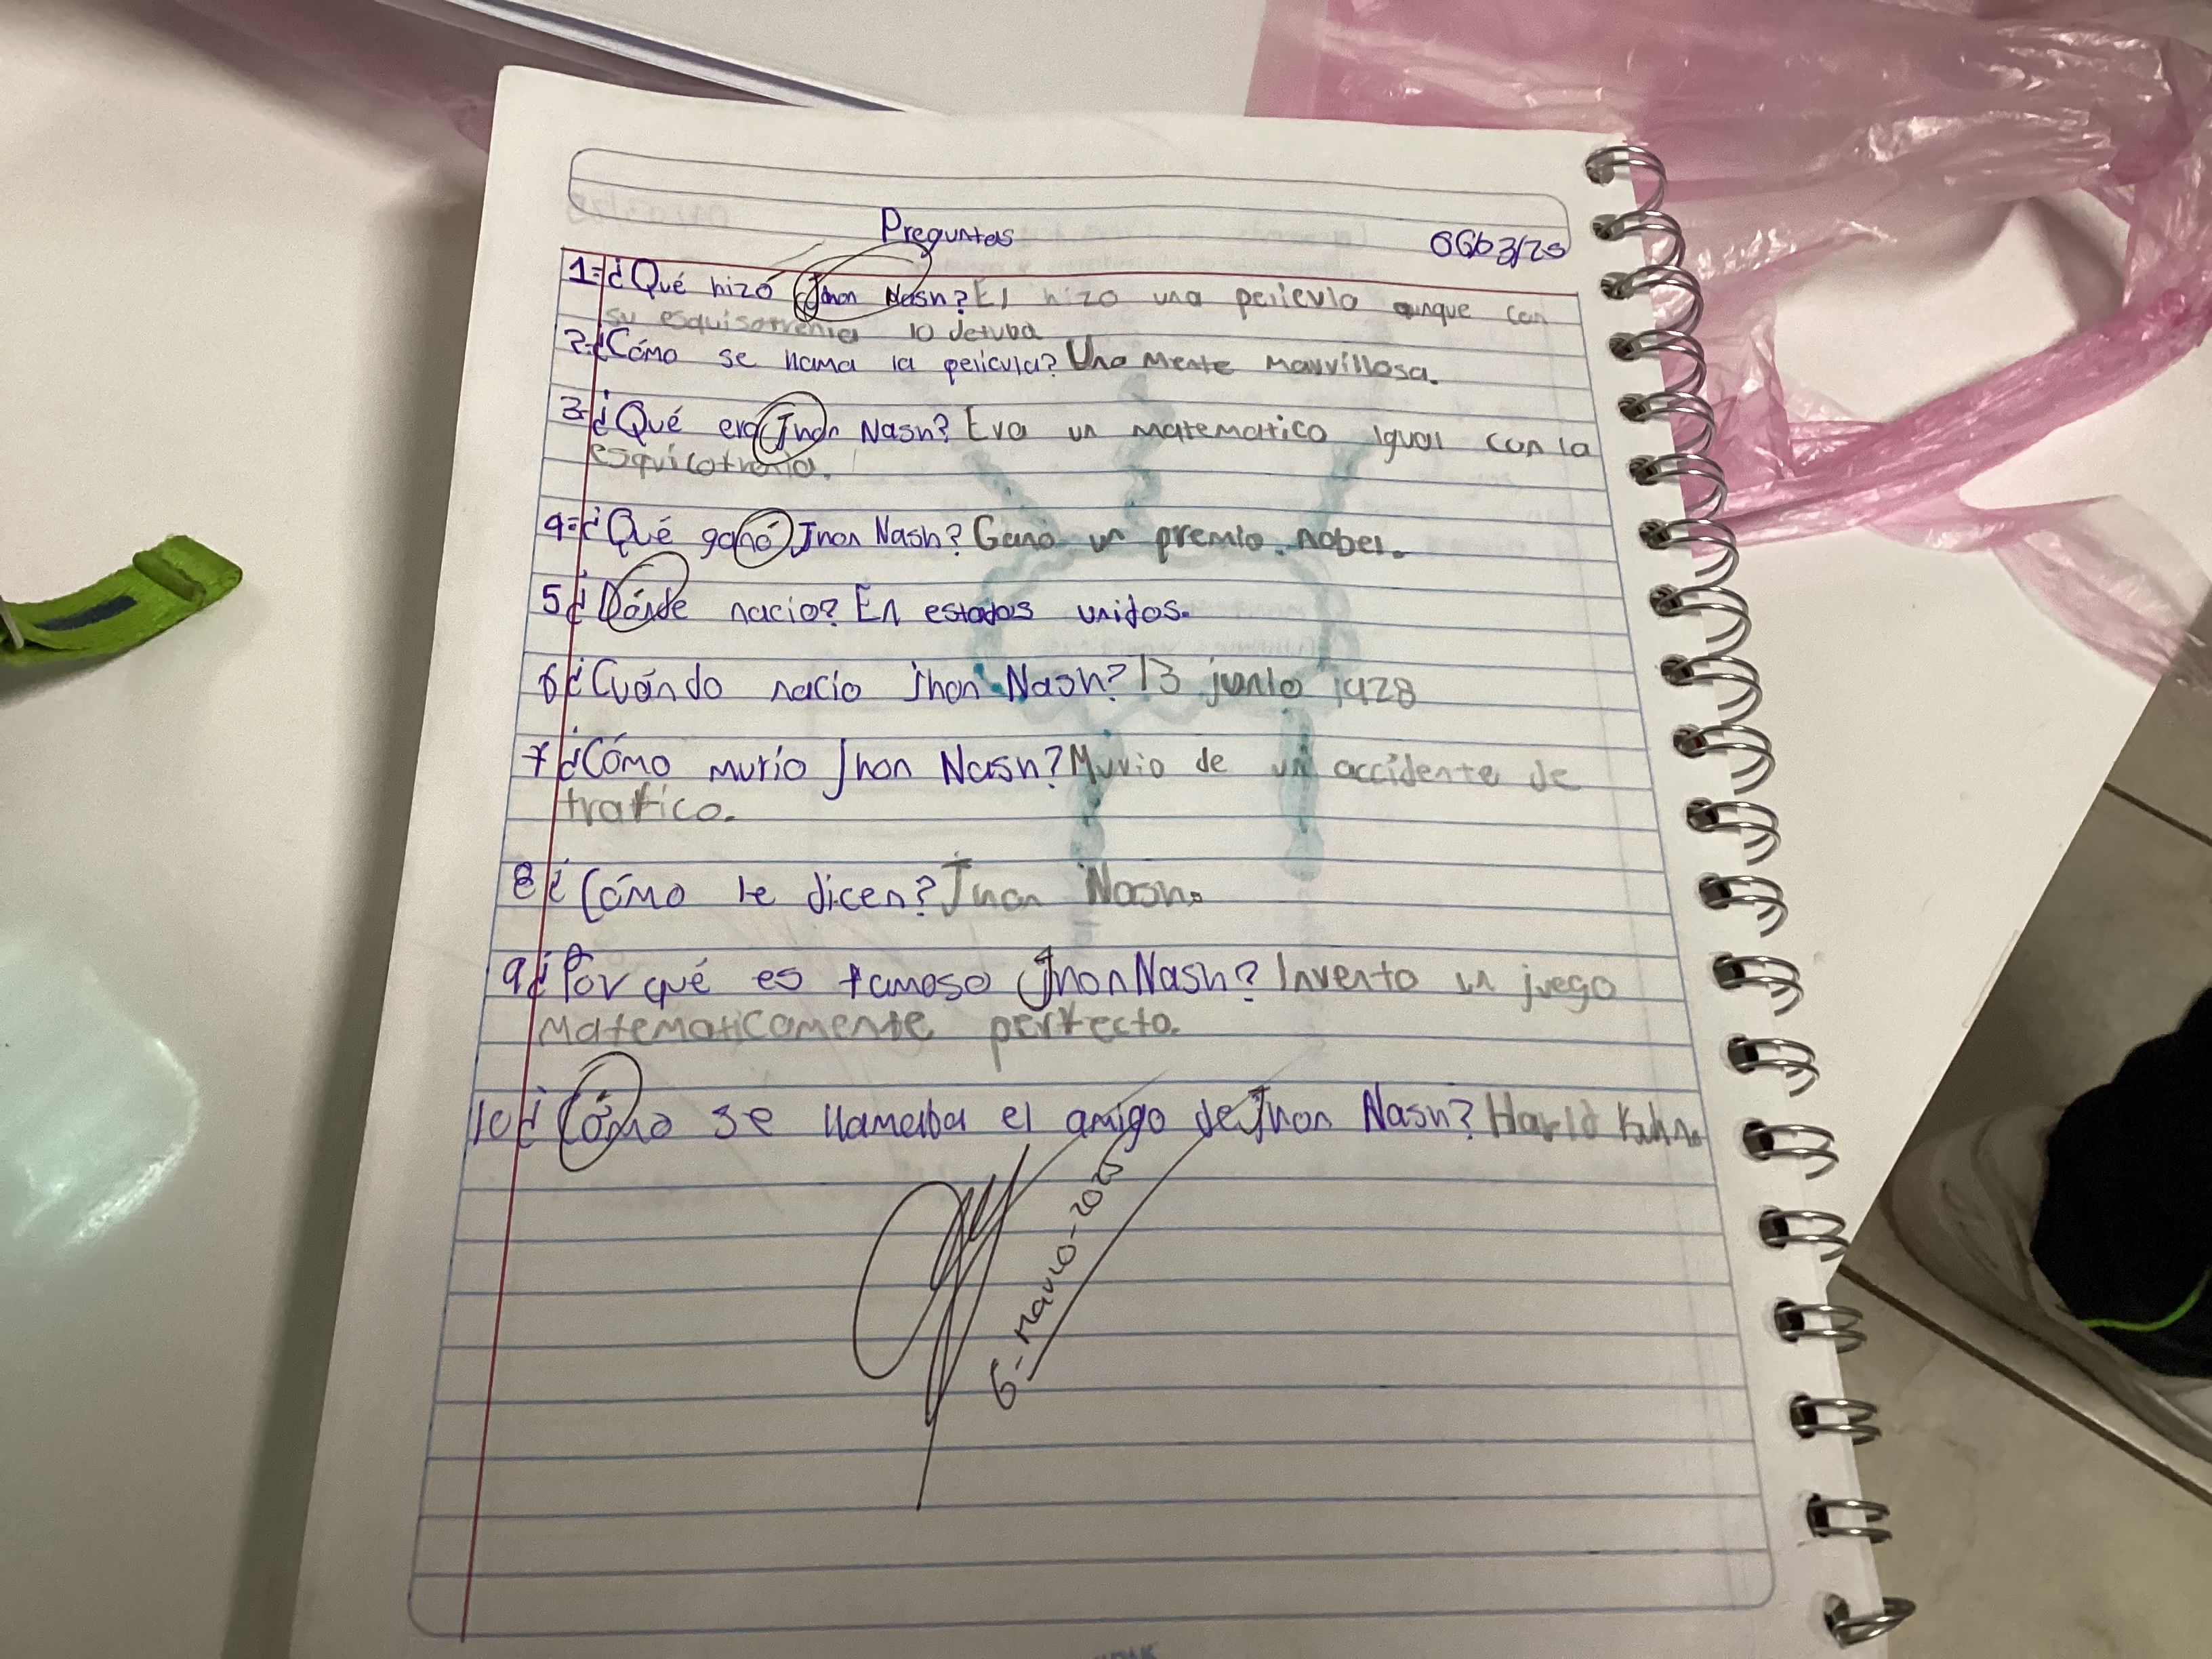 Preguntas
1=¿Qué hizó Jhon Nash? El hizo una pelicula aunque con
su esquisofrenia lo detuba
2=¿Cómo se llama la pelicula? Una mente marvillosa.
3-¿Qué era Jhon Nash? Era un matematico igual con la
esquicofrenia.
4=¿Qué ganó Jhon Nash? Gano un premio. nobel.
5¿Dónde nacio? En estados unidos.
6¿Cuándo nacio Jhon Nash? 13 junio 1928
7¿Cómo murio Jhon Nash? Murio de un accidente de
trafico.
8¿Cómo le dicen? Jhon Nash.
9¿Por qué es famoso Jhon Nash? Invento un juego
matematicamente perfecto.
10¿Cómo se llamaba el amigo de Jhon Nash? Harld Kuhn.
6-Marzo-2025